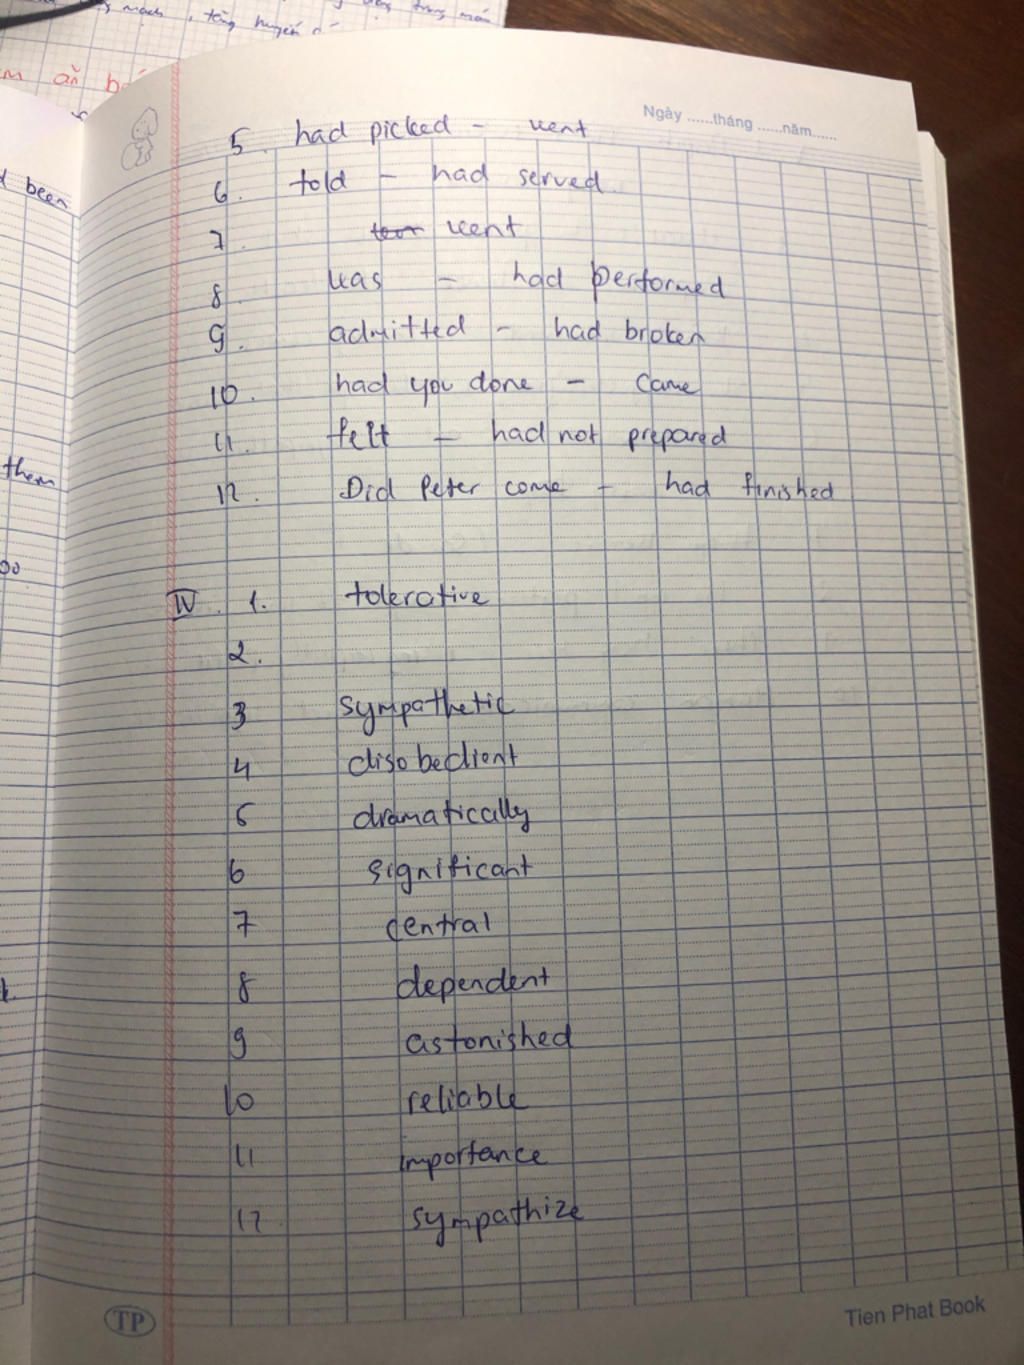 mạch, tăng huyết
ăn
Ngày ......tháng ......năm......
been
them
5. had picked - went
6. told - had served
7. went
8. was - had performed
9. admitted - had broken
10. had you done - came
11. felt - had not prepared
12. Did Peter come - had finished
IV. 1. tolerative
2.
3 sympathetic
4 disobedient
5 dramatically
6 significant
7 central
8 dependent
9 astonished
10 reliable
11 importance
12 sympathize
TP
Tien Phat Book